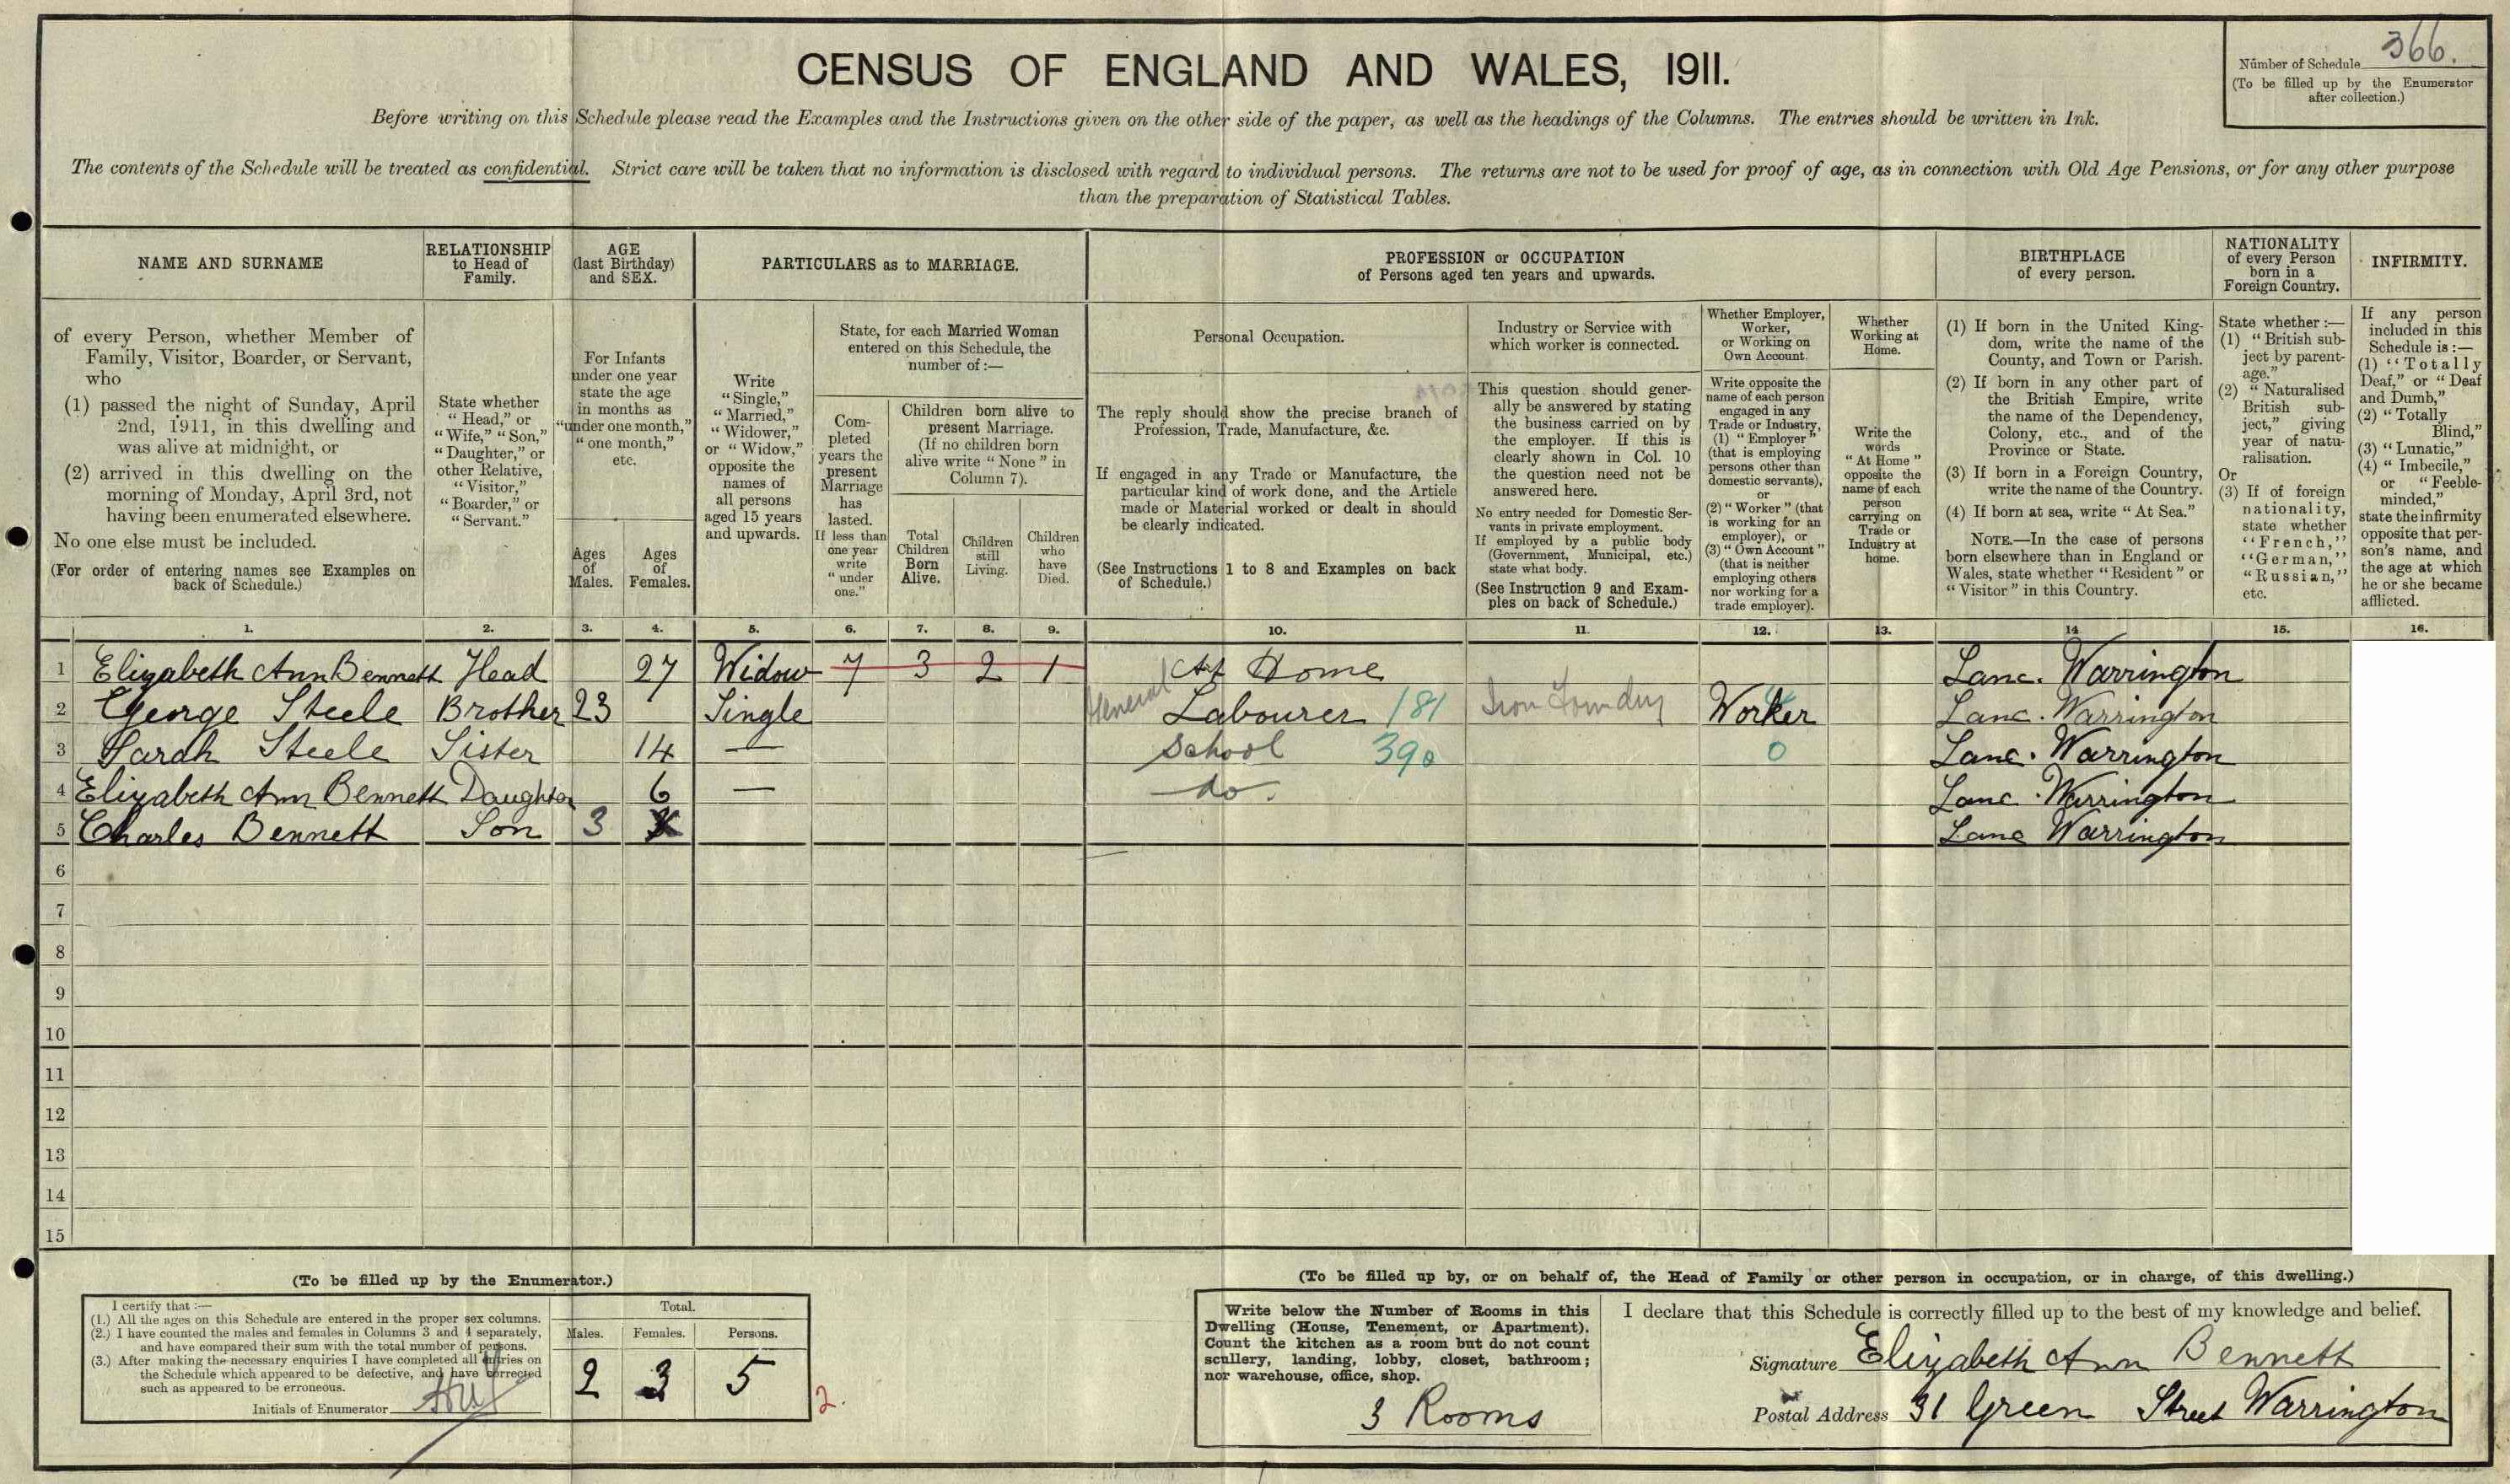 Number of Schedule 366.
(To be filled up by the Enumerator
after collection.)
CENSUS OF ENGLAND AND WALES, 1911.
Before writing on this Schedule please read the Examples and the Instructions given on the other side of the paper, as well as the headings of the Columns. The entries should be written in Ink.
The contents of the Schedule will be treated as confidential. Strict care will be taken that no information is disclosed with regard to individual persons. The returns are not to be used for proof of age, as in connection with Old Age Pensions, or for any other purpose
than the preparation of Statistical Tables.
NAME AND SURNAME
of every Person, whether Member of
Family, Visitor, Boarder, or Servant,
who
(1) passed the night of Sunday, April
2nd, 1911, in this dwelling and
was alive at midnight, or
(2) arrived in this dwelling on the
morning of Monday, April 3rd, not
having been enumerated elsewhere.
No one else must be included.
(For order of entering names see Examples on
back of Schedule.)
RELATIONSHIP
to Head of
Family.
State whether
"Head," or
"Wife," "Son,"
"Daughter," or
other Relative,
"Visitor,"
"Boarder," or
"Servant."
AGE
(last Birthday)
and SEX.
For Infants
under one year
state the age
in months as
"under one month,"
"one month,"
etc.
Ages
of
Males.
Ages
of
Females.
PARTICULARS as to MARRIAGE.
Write
"Single,"
"Married,"
"Widower,"
or "Widow,"
opposite the
names of
all persons
aged 15 years
and upwards.
State, for each Married Woman
entered on this Schedule, the
number of:—
Com-
pleted
years the
present
Marriage
has
lasted.
If less than
one year
write
"under
one."
Children born alive to
present Marriage.
(If no children born
alive write "None" in
Column 7).
Total
Children
Born
Alive.
Children
still
Living.
Children
who
have
Died.
PROFESSION or OCCUPATION
of Persons aged ten years and upwards.
Personal Occupation.
The reply should show the precise branch of
Profession, Trade, Manufacture, &c.
If engaged in any Trade or Manufacture, the
particular kind of work done, and the Article
made or Material worked or dealt in should
be clearly indicated.
(See Instructions 1 to 8 and Examples on back
of Schedule.)
Industry or Service with
which worker is connected.
This question should gener-
ally be answered by stating
the business carried on by
the employer. If this is
clearly shown in Col. 10
the question need not be
answered here.
No entry needed for Domestic Ser-
vants in private employment.
If employed by a public body
(Government, Municipal, etc.)
state what body.
(See Instruction 9 and Exam-
ples on back of Schedule.)
Whether Employer,
Worker,
or Working on
Own Account.
Write opposite the
name of each person
engaged in any
Trade or Industry,
(1) "Employer"
(that is employing
persons other than
domestic servants),
or
(2) "Worker" (that
is working for an
employer), or
(3) "Own Account"
(that is neither
employing others
nor working for a
trade employer).
Whether
Working at
Home.
Write the
words
"At Home"
opposite the
name of each
person
carrying on
Trade or
Industry at
home.
BIRTHPLACE
of every person.
(1) If born in the United King-
dom, write the name of the
County, and Town or Parish.
(2) If born in any other part of
the British Empire, write
the name of the Dependency,
Colony, etc., and of the
Province or State.
(3) If born in a Foreign Country,
write the name of the Country.
(4) If born at sea, write "At Sea."
NOTE.—In the case of persons
born elsewhere than in England or
Wales, state whether "Resident" or
"Visitor" in this Country.
NATIONALITY
of every Person
born in a
Foreign Country.
State whether:—
(1) "British sub-
ject by parent-
age."
(2) "Naturalised
British sub-
ject," giving
year of natu-
ralisation.
Or
(3) If of foreign
nationality,
state whether
"French,"
"German,"
"Russian,"
etc.
INFIRMITY.
If any person
included in this
Schedule is:—
(1) "Totally
Deaf," or "Deaf
and Dumb,"
(2) "Totally
Blind,"
(3) "Lunatic,"
(4) "Imbecile,"
or "Feeble-
minded,"
state the infirmity
opposite that per-
son's name, and
the age at which
he or she became
afflicted.
1. 2. 3. 4. 5. 6. 7. 8. 9. 10. 11. 12. 13. 14 15. 16.
1 Elizabeth Ann Bennett Head 27 Widow 7 3 2 1 At Home Lanc. Warrington
2 George Steele Brother 23 Single General Labourer 181 Iron Foundry Worker Lanc. Warrington
3 Sarah Steele Sister 14 — School 390 0 Lanc. Warrington
4 Elizabeth Ann Bennett Daughter 6 — do. Lanc. Warrington
5 Charles Bennett Son 3 Lanc Warrington
6
7
8
9
10
11
12
13
14
15
(To be filled up by the Enumerator.)
I certify that:—
(1.) All the ages on this Schedule are entered in the proper sex columns.
(2.) I have counted the males and females in Columns 3 and 4 separately,
and have compared their sum with the total number of persons.
(3.) After making the necessary enquiries I have completed all entries on
the Schedule which appeared to be defective, and have corrected
such as appeared to be erroneous.
Initials of Enumerator
Total.
Males. Females. Persons.
2 3 5
2.
(To be filled up by, or on behalf of, the Head of Family or other person in occupation, or in charge, of this dwelling.)
Write below the Number of Rooms in this
Dwelling (House, Tenement, or Apartment).
Count the kitchen as a room but do not count
scullery, landing, lobby, closet, bathroom;
nor warehouse, office, shop.
3 Rooms
I declare that this Schedule is correctly filled up to the best of my knowledge and belief.
Signature Elizabeth Ann Bennett
Postal Address 31 Green Street Warrington